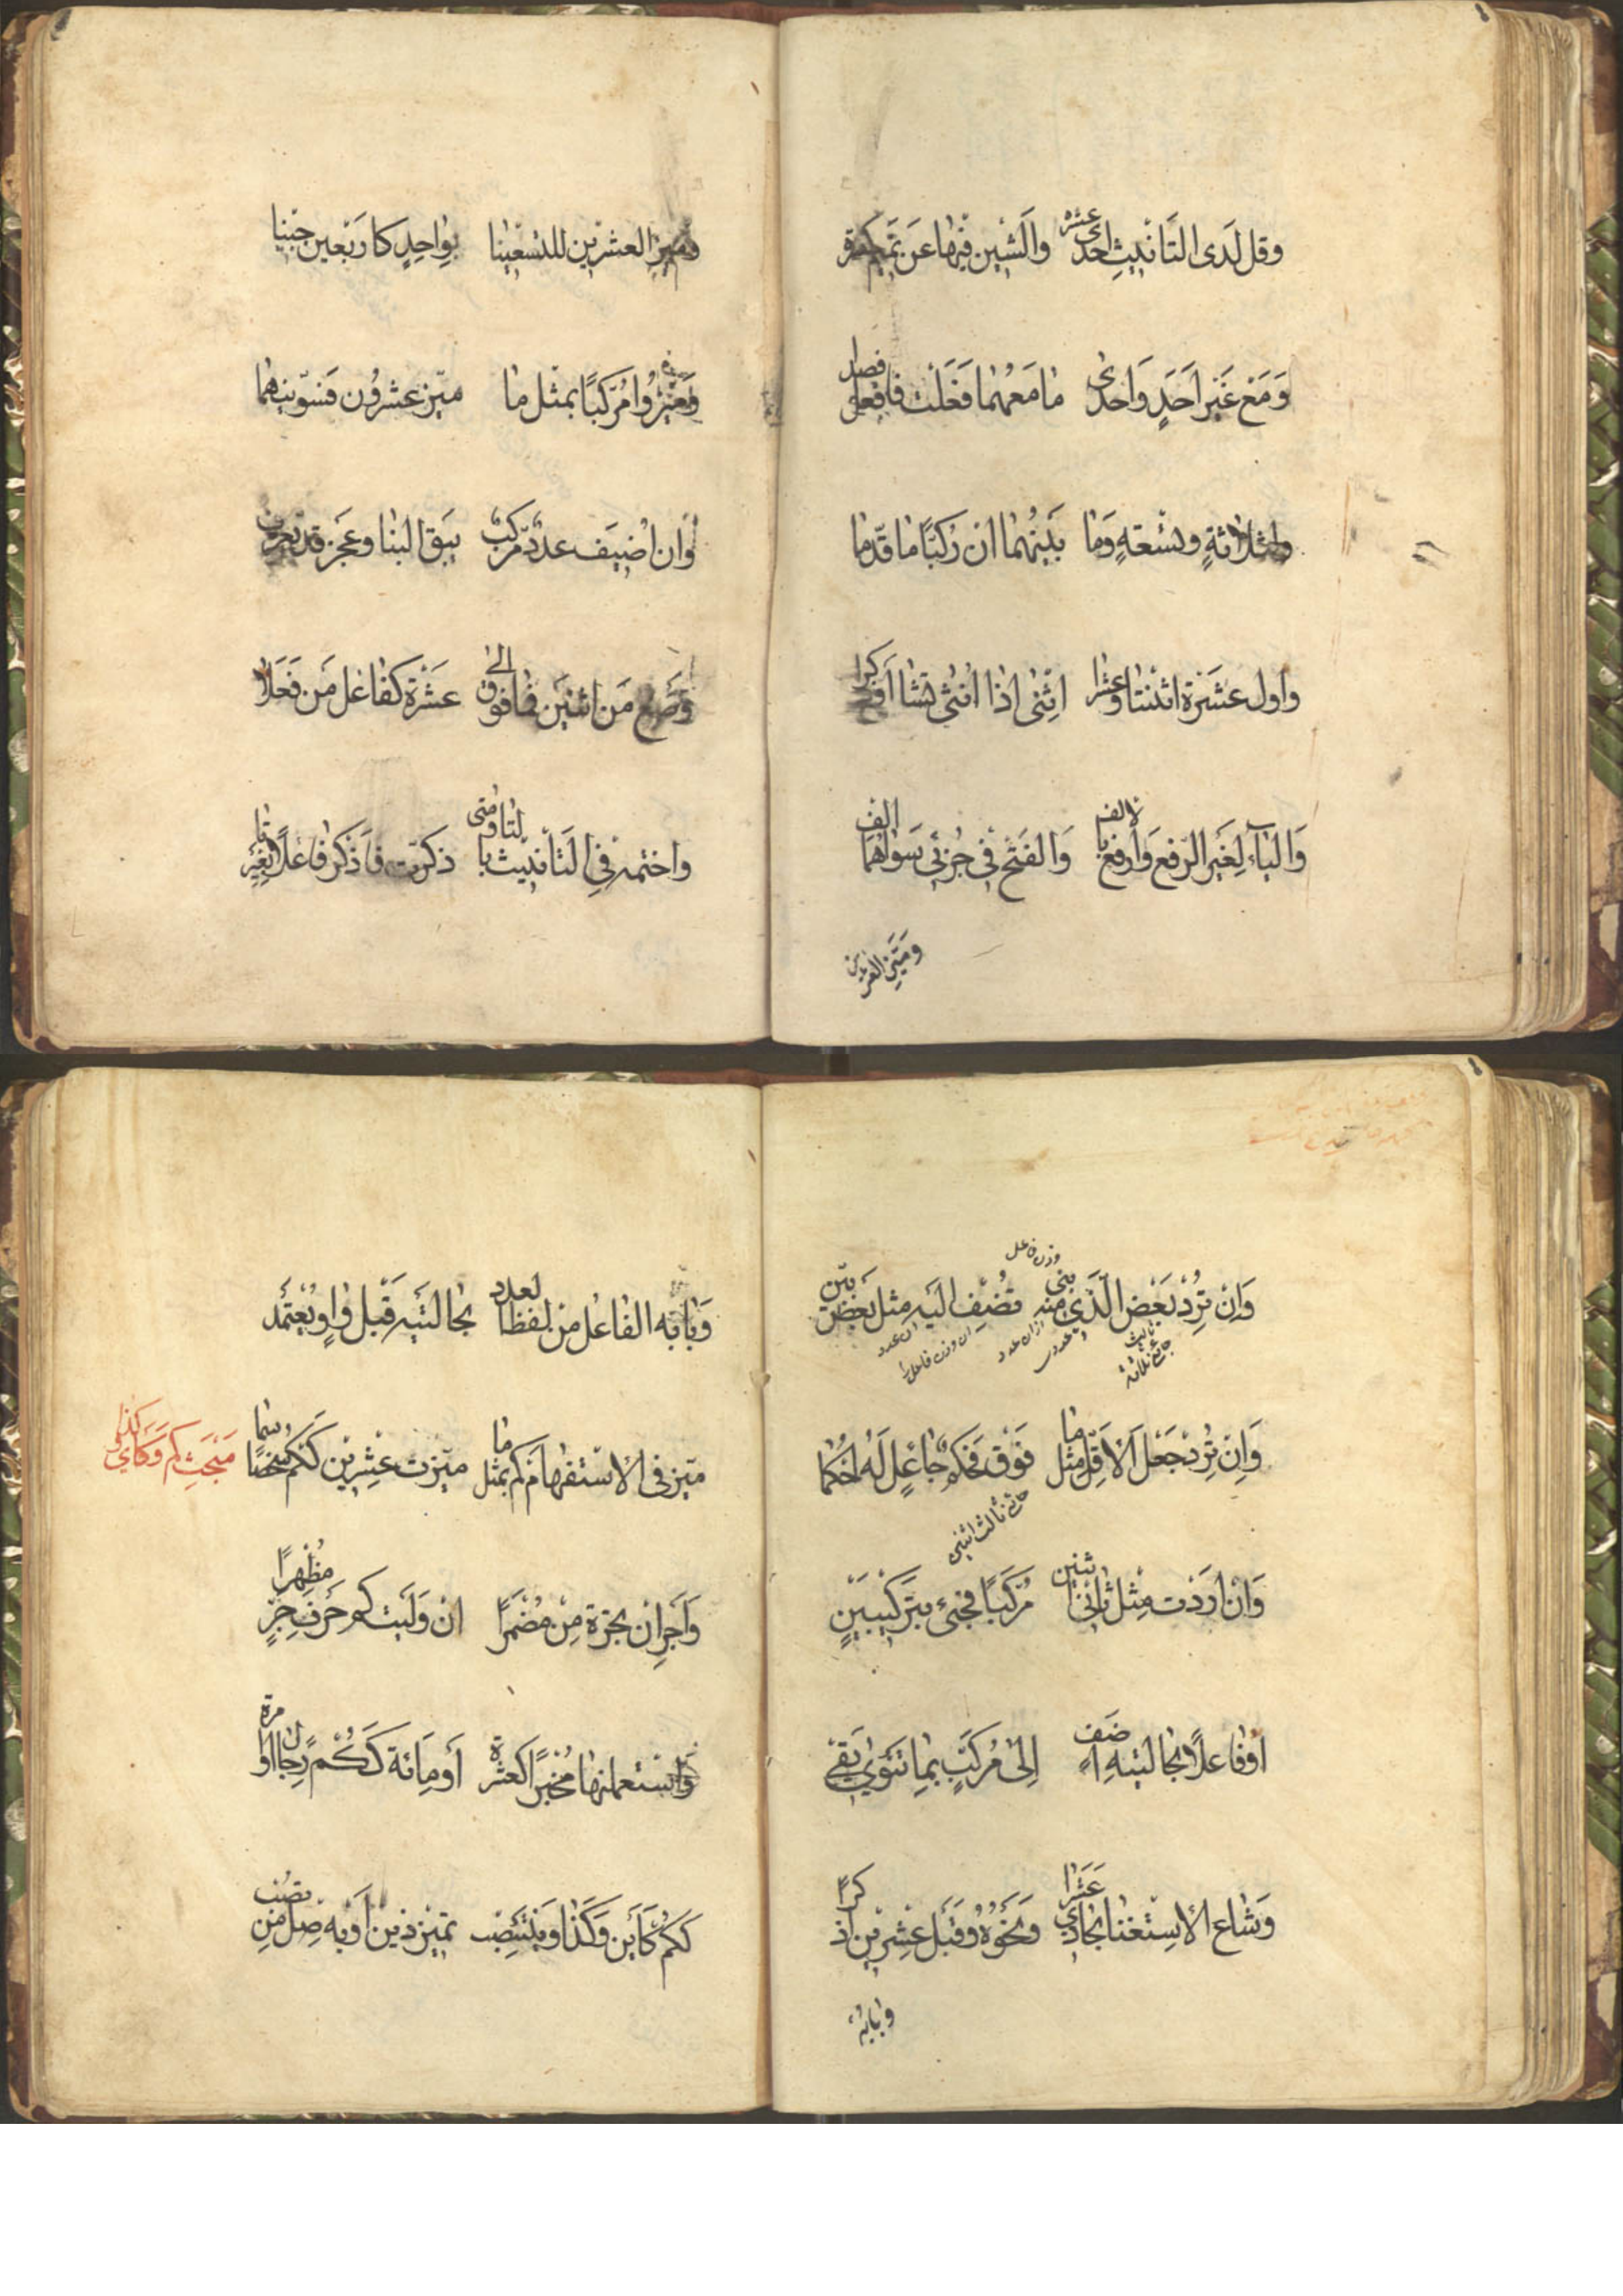 وقل لدى التانيث احدى عشره والشين فيها عن تميم كسره
ومع غير احد واحدى ما معهما فعلت فافعل فصدا
ولثلاثة وتسعة وما بينهما ان ركبا ما قدما
واول عشرة اثنتا وعشرا اثنى اذا انثى تشا او ذكرا
والياء لغير الرفع وارفع بالالف والفتح في جزئي سواهما الف
وميز العشرين
وميز العشرين للتسعينا بواحد كاربعين حينا
وميزوا مركبا بمثل ما ميز عشرون فسوينهما
وان اضيف عدد مركب يبق البنا وعجز قد يعرب
وصغ من اثنين فما فوق الى عشرة كفاعل من فعلا
واختمه في التانيث بالتا ومتى ذكرت فاذكر فاعلا بغير تا
وزن فاعل
وان ترد بعض الذي منه بني تضف اليه مثل بعض بين
وان ترد جعل الاقل مثل ما فوق فحكم جاعل له احكما
وان اردت مثل ثاني اثنين مركبا فجئ بتركيبين
او فاعلا بحالتيه اضف الى مركب بما تنوي يفي
وشاع الاستغنا بحادي عشرا ونحوه وقبل عشرين اذكرا
وبابه
وبابه الفاعل من لفظ العدد بحالتيه قبل واو يعتمد
مبحث كم وكاي وكذا
ميز في الاستفهام كم بمثل ما ميزت عشرين ككم شخصا سما
واجز ان تجره من مضمرا ان وليت كم حرف جر مظهرا
واستعملنها مخبرا كعشرة او مائة ككم رجال او مرة
ككم كاين وكذا وينتصب تميز ذين او به صل من تصب